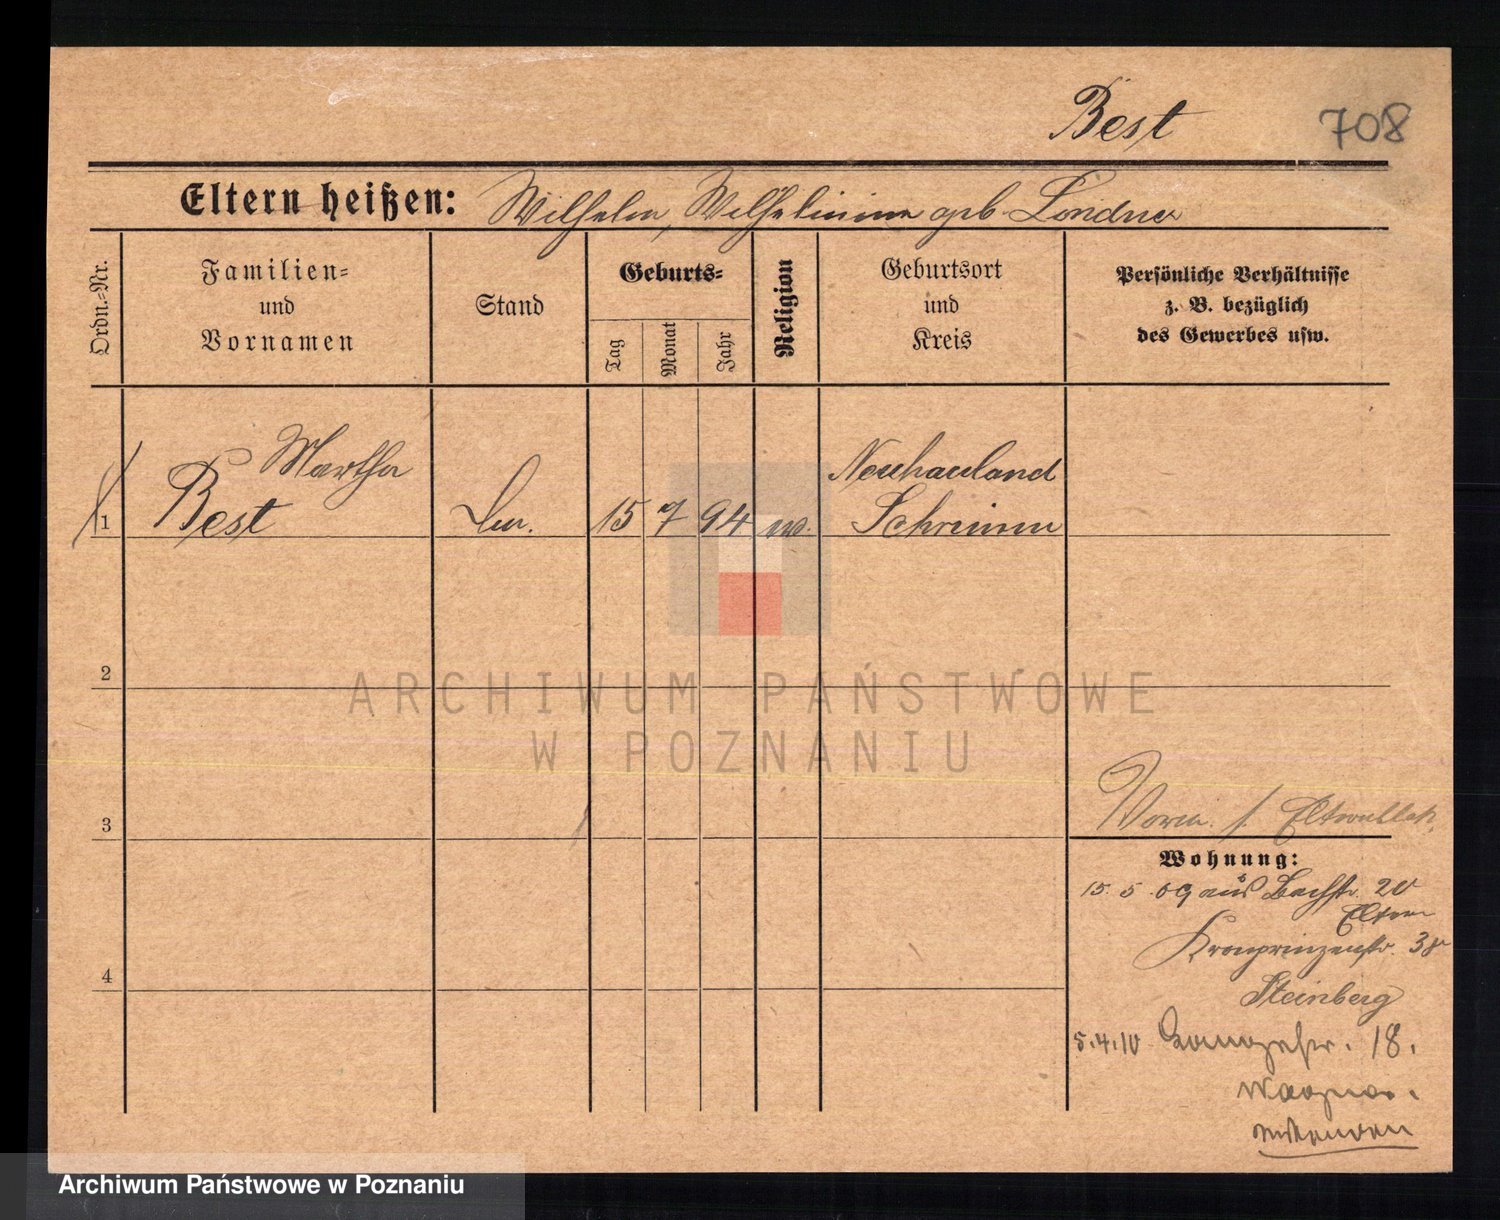 Best
708
Eltern heißen: Wilhelm, Wilhelmine geb. Londner
Ordn.-Nr.
Familien-
und
Vornamen
Stand
Geburts-
Tag
Monat
Jahr
Religion
Geburtsort
und
Kreis
Persönliche Verhältnisse
z. B. bezüglich
des Gewerbes usw.
Martha
Neuhauland
1 Best 15 7 94 Schrimm
2
3
4
Worm. s.
Wohnung:
15. 5. 09 aus Bachstr. 20
Eltern
Kronprinzenstr. 38
Steinberg
5.4.10 18.
ARCHIWUM PAŃSTWOWE
W POZNANIU
Archiwum Państwowe w Poznaniu